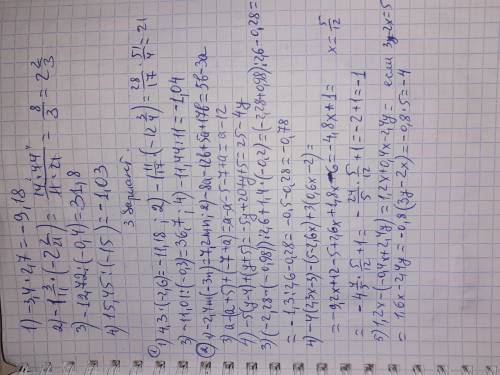 1) -3,4 · 2,7 = -9,18
2) -1 3/11 · (-2 2/21) = 14·44/11·21 = 8/3 = 2 2/3
3) -12,72 : (-0,4) = 31,8
4) 15,45 : (-15) = -1,03
3 Вариант.
① 1) 4,3 · (-2,6) = -11,18 2) -1 11/17 · (-12 3/4) = 28/17 · 51/4 = 21
3) -11,01 : (-0,3) = 36,7; 4) -11,44 : 11 = -1,04
② 1) -2,4 · (-3n) = 7,2 n; 2) -8a - 12b + 5a + 17b = 5b - 3a
3) a - (a+5) + (-7+a) = a - a - 5 - 7 + a = a - 12
4) -5(y-4) + (y+5) = -5y + 20 + y + 5 = 25 - 4y
3) (-2,28 + (-0,98)) : 2,6 + 1,4 · (-0,2) = (-2,28 + 0,98) : 2,6 - 0,28 =
= -1,3 : 2,6 - 0,28 = -0,5 - 0,28 = -0,78
4) -4(2,3x - 3) - (5 - 2,6x) + 3(0,6x - 2) =
= -9,2x + 12 - 5 + 2,6x + 1,8x - 6 = -4,8x + 1 = x = 5/12
= -4 4/5 · 5/12 + 1 = -24/5 · 5/12 + 1 = -2 + 1 = -1
5) 1,2x - (-0,4x + 2,4y) = 1,2x + 0,4x - 2,4y = если 3y - 2x = 5
= 1,6x - 2,4y = -0,8(3y - 2x) = -0,8 · 5 = -4